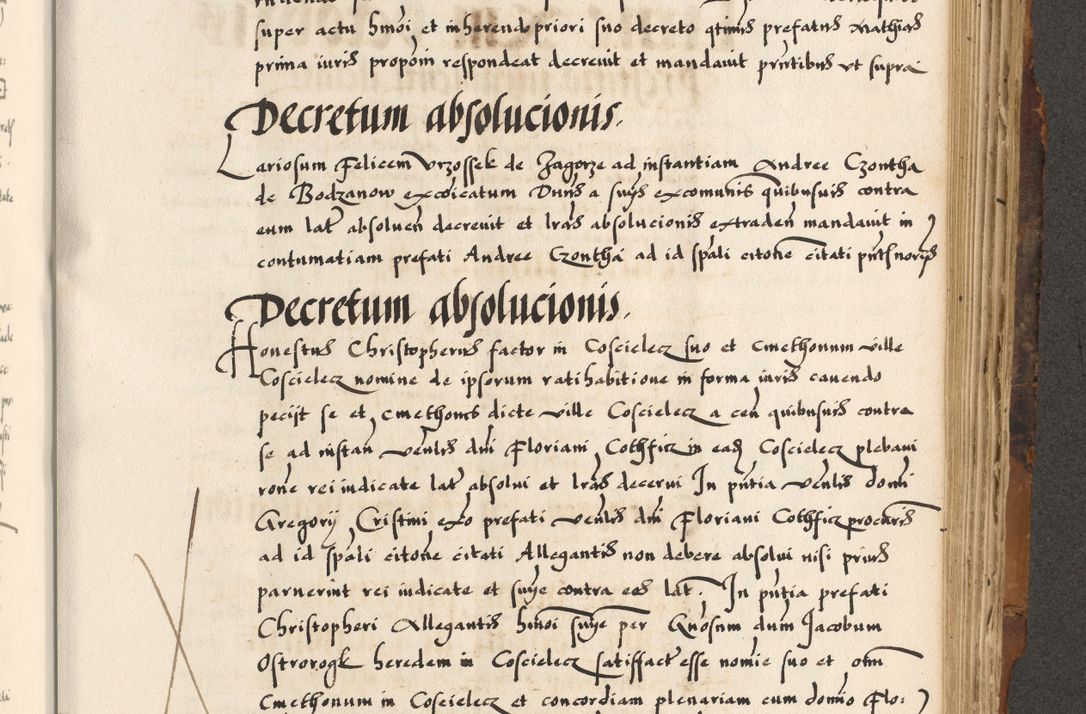 super actu hmoi et inherendo priori suo decreto qtinus prefatus Mathias
prima iuris propoin respondeat decrevit et mandavit pntibus ut supra
Decretum absolucionis.
Lariosum Felicem Vrzossek de Zagorze ad instantiam Andree Czontha
de Bodzanow excoicatum Duns a snijs excomunis quibusuis contra
eum lat absolven decrevit et lras absolucionis extraden mandavit in
contumatiam prefati Andree Czontha ad id spali citone citati pnts noris
Decretum absolucionis.
Honestus Christopherus factor in Coscielecz suo et Cmethonum ville
Coscielecz nomine de ipsorum ratihabitione in forma iuris cavendo
pecijt se et cmethones dicte ville Coscielecz a cen quibusuis contra
se ad instan venlis dni Floriani Cothficz in ead Coscielecz plebani
rone rei iudicate lat absolui et lras decerni In pntia venlis domi
Gregorij Cristini exo prefati venlis dni Floriani Cothficz procuris
ad id spali citone citati Allegantis non debere absolui nisi prius
parnerint rei iudicate et snije contra eos lat. In pntia prefati
Christopheri Allegantis hmoi snije per Gnosum dum Jacobum
Ostrorogk heredem in Coscielecz satisfact esse nomie suo et om
Cmethonum in Coscielecz et concordiam plenariam cum domio Flo: